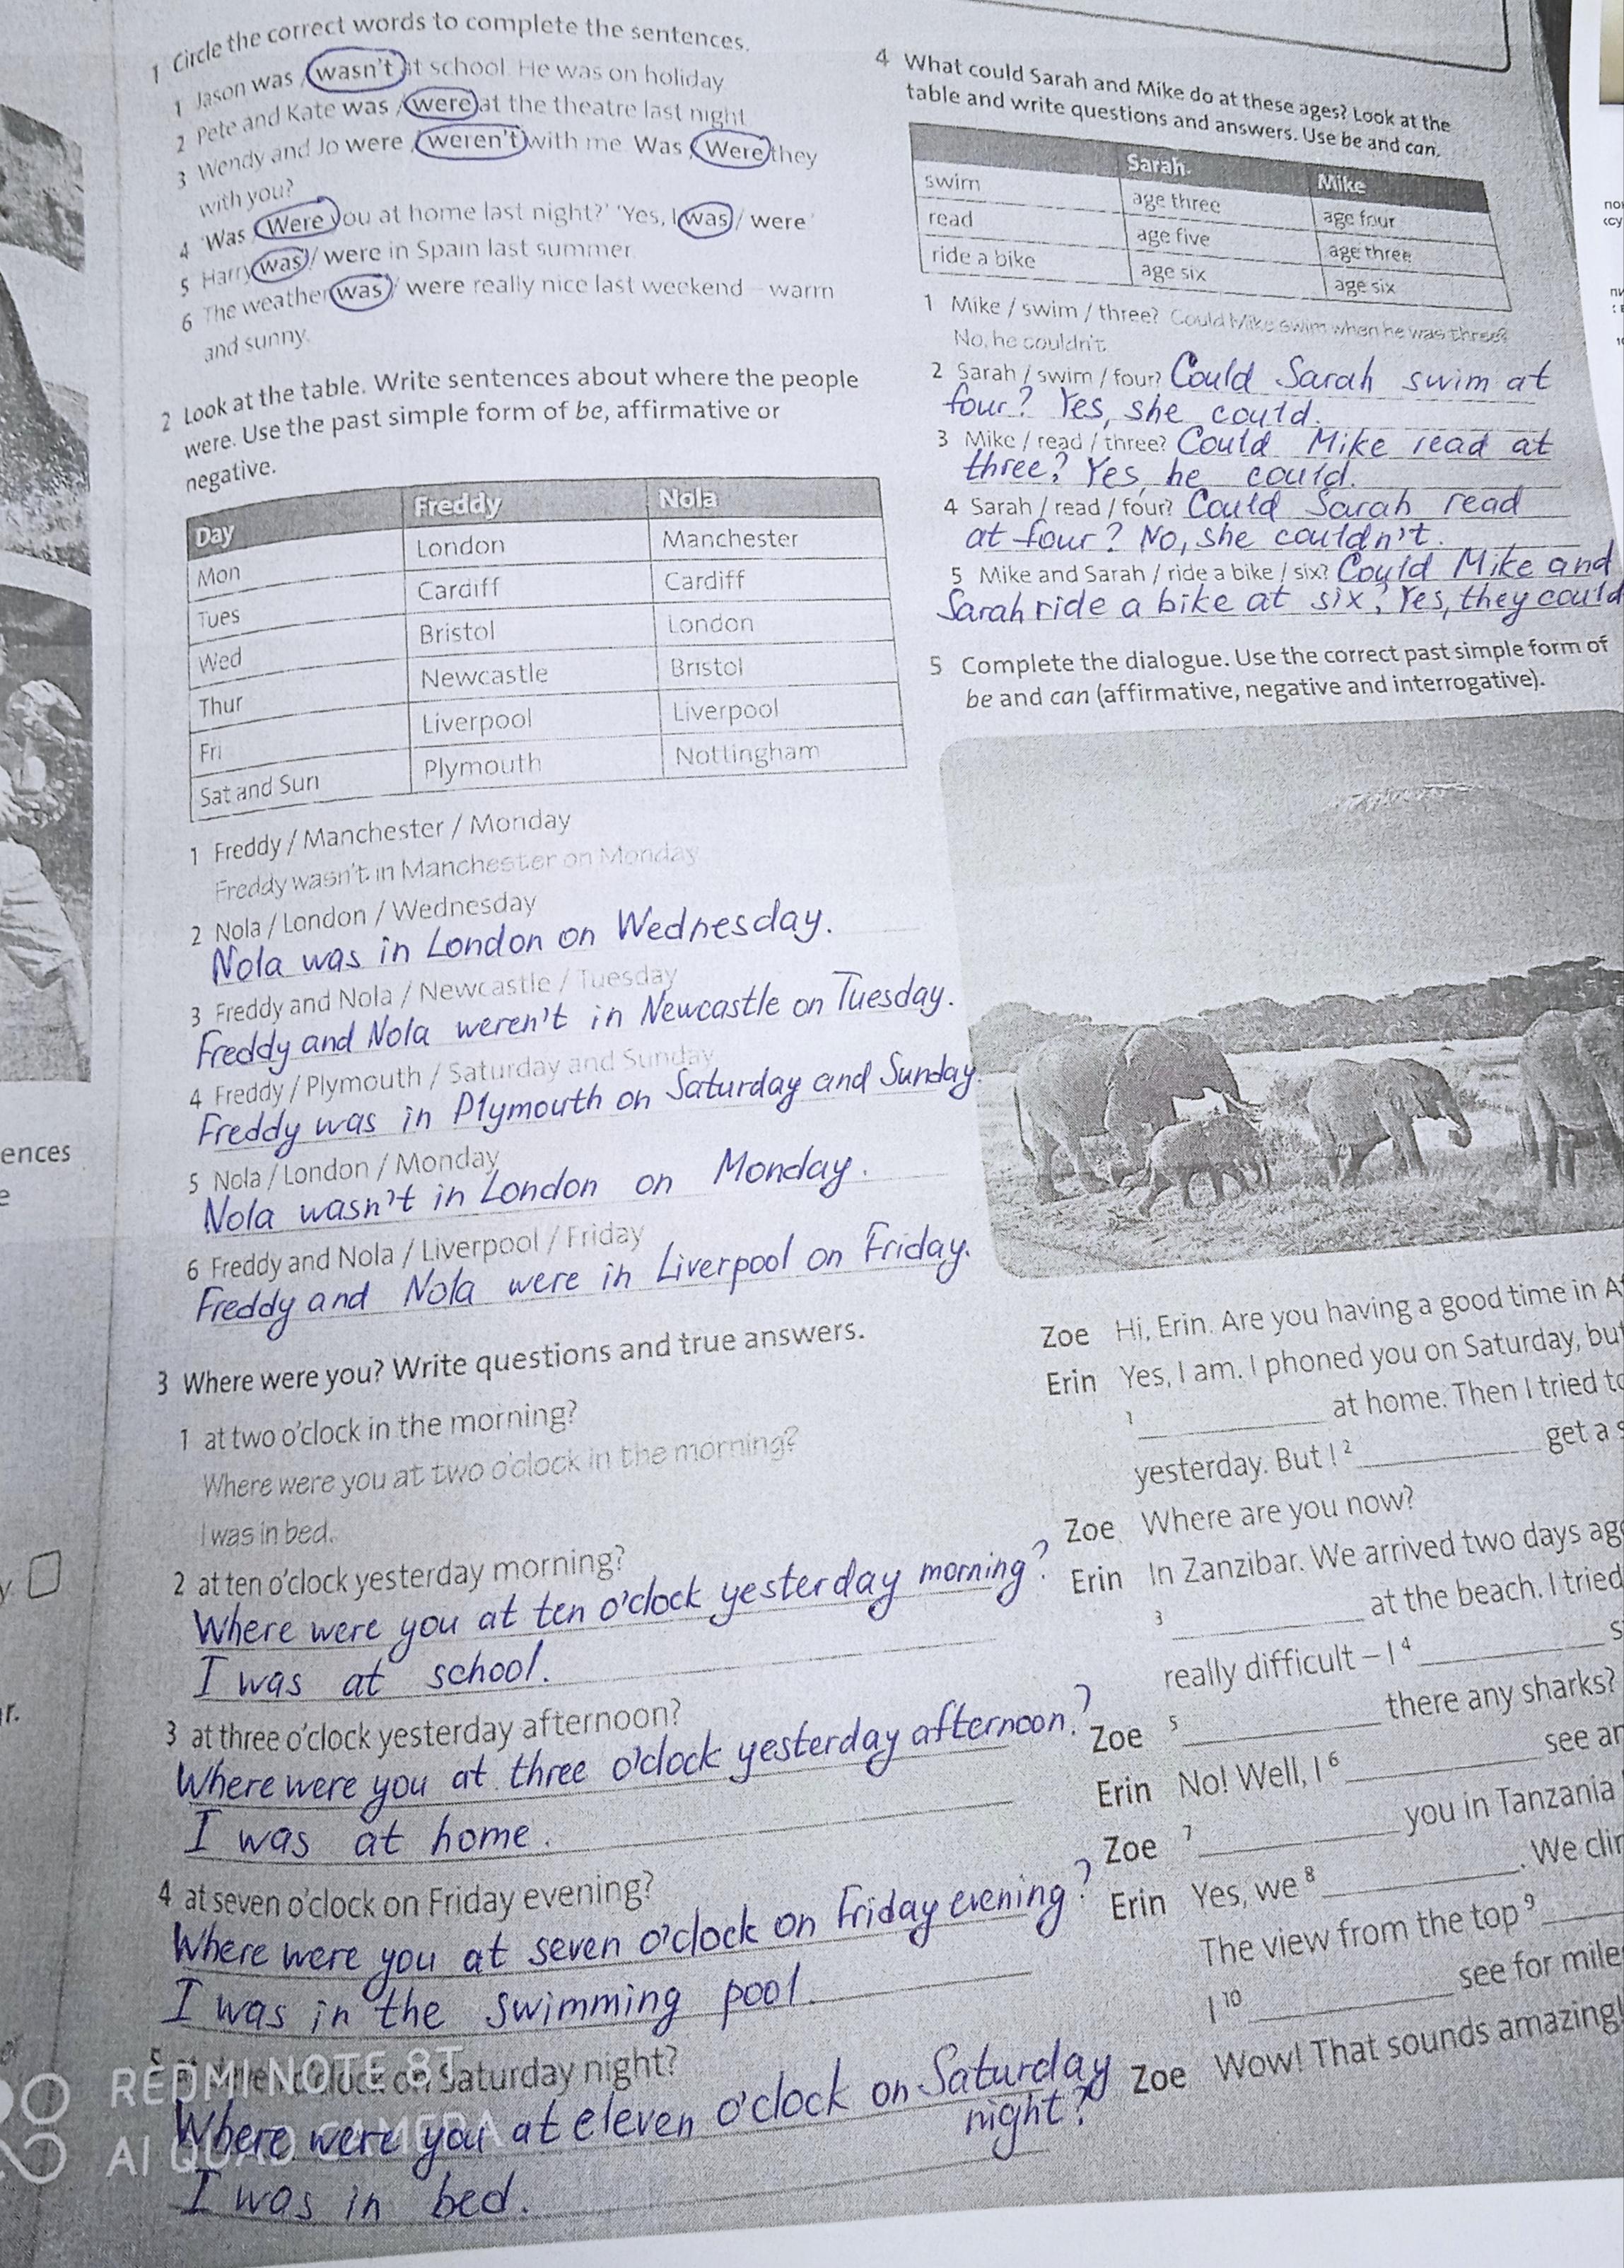 1 Circle the correct words to complete the sentences.
1 Jason was / wasn't at school. He was on holiday
2 Pete and Kate was / were at the theatre last night
3 Wendy and Jo were / weren't with me. Was / Were they
with you?
4 'Was / Were you at home last night?' 'Yes, I was / were'
5 Harry was / were in Spain last summer
6 The weather was / were really nice last weekend – warm
and sunny.
2 Look at the table. Write sentences about where the people
were. Use the past simple form of be, affirmative or
negative.
Day Freddy Nola
Mon London Manchester
Tues Cardiff Cardiff
Wed Bristol London
Thur Newcastle Bristol
Fri Liverpool Liverpool
Sat and Sun Plymouth Nottingham
1 Freddy / Manchester / Monday
Freddy wasn't in Manchester on Monday
2 Nola / London / Wednesday
Nola was in London on Wednesday.
3 Freddy and Nola / Newcastle / Tuesday
Freddy and Nola weren't in Newcastle on Tuesday.
4 Freddy / Plymouth / Saturday and Sunday
Freddy was in Plymouth on Saturday and Sunday.
5 Nola / London / Monday
Nola wasn't in London on Monday.
6 Freddy and Nola / Liverpool / Friday
Freddy and Nola were in Liverpool on Friday.
3 Where were you? Write questions and true answers.
1 at two o'clock in the morning?
Where were you at two o'clock in the morning?
I was in bed.
2 at ten o'clock yesterday morning?
Where were you at ten o'clock yesterday morning?
I was at school.
3 at three o'clock yesterday afternoon?
Where were you at three o'clock yesterday afternoon?
I was at home.
4 at seven o'clock on Friday evening?
Where were you at seven o'clock on Friday evening?
I was in the swimming pool.
5 on Saturday night?
Where were you at eleven o'clock on Saturday
night?
I was in bed.
4 What could Sarah and Mike do at these ages? Look at the
table and write questions and answers. Use be and can.
Sarah Mike
swim age three age four
read age five age three
ride a bike age six age six
1 Mike / swim / three? Could Mike swim when he was three?
No, he couldn't.
2 Sarah / swim / four? Could Sarah swim at
four? Yes, she could.
3 Mike / read / three? Could Mike read at
three? Yes, he could.
4 Sarah / read / four? Could Sarah read
at four? No, she couldn't.
5 Mike and Sarah / ride a bike / six? Could Mike and
Sarah ride a bike at six? Yes, they could
5 Complete the dialogue. Use the correct past simple form of
be and can (affirmative, negative and interrogative).
Zoe Hi, Erin. Are you having a good time in A
Erin Yes, I am. I phoned you on Saturday, but
1 at home. Then I tried to
yesterday. But I 2 get a s
Zoe Where are you now?
Erin In Zanzibar. We arrived two days ag
3 at the beach. I tried
really difficult – I 4 s
Zoe 5 there any sharks?
Erin No! Well, I 6 see an
Zoe 7 you in Tanzania
Erin Yes, we 8 . We clim
The view from the top 9
I 10 see for mile
Zoe Wow! That sounds amazing!
ences
REDMI NOTE 8T
AI QUAD CAMERA